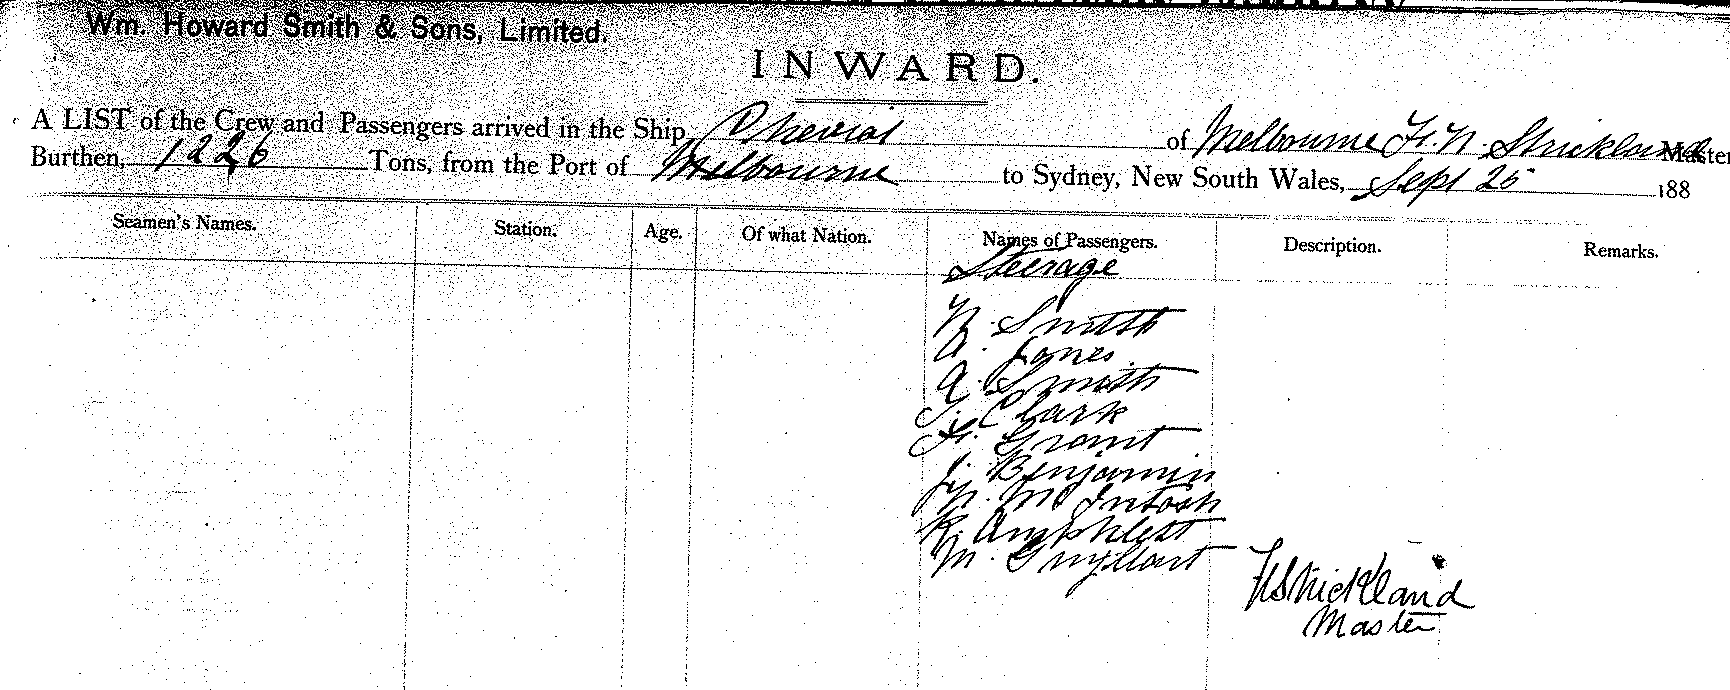 Wm. Howard Smith & Sons, Limited.
INWARD.
A LIST of the Crew and Passengers arrived in the Ship Cheviot of Melbourne F. N. Strickland Master
Burthen, 1226 Tons, from the Port of Melbourne to Sydney, New South Wales, Sept 25 188
Seamen's Names. Station. Age. Of what Nation. Names of Passengers. Description. Remarks.
Steerage
N. Smith
A. Jones
A. Smith
T. Clark
F. Grant
J. Benjamin
N. McIntosh
K. Amphlett
M.
F N Strickland
Master